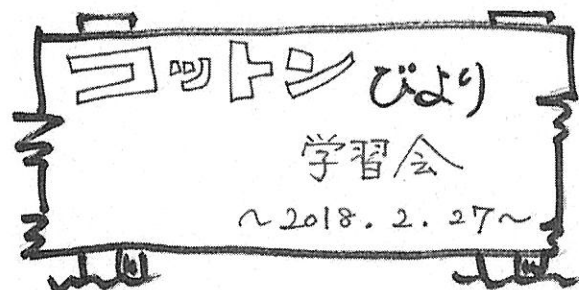 コットンびより
学習会
～2018.2.27～